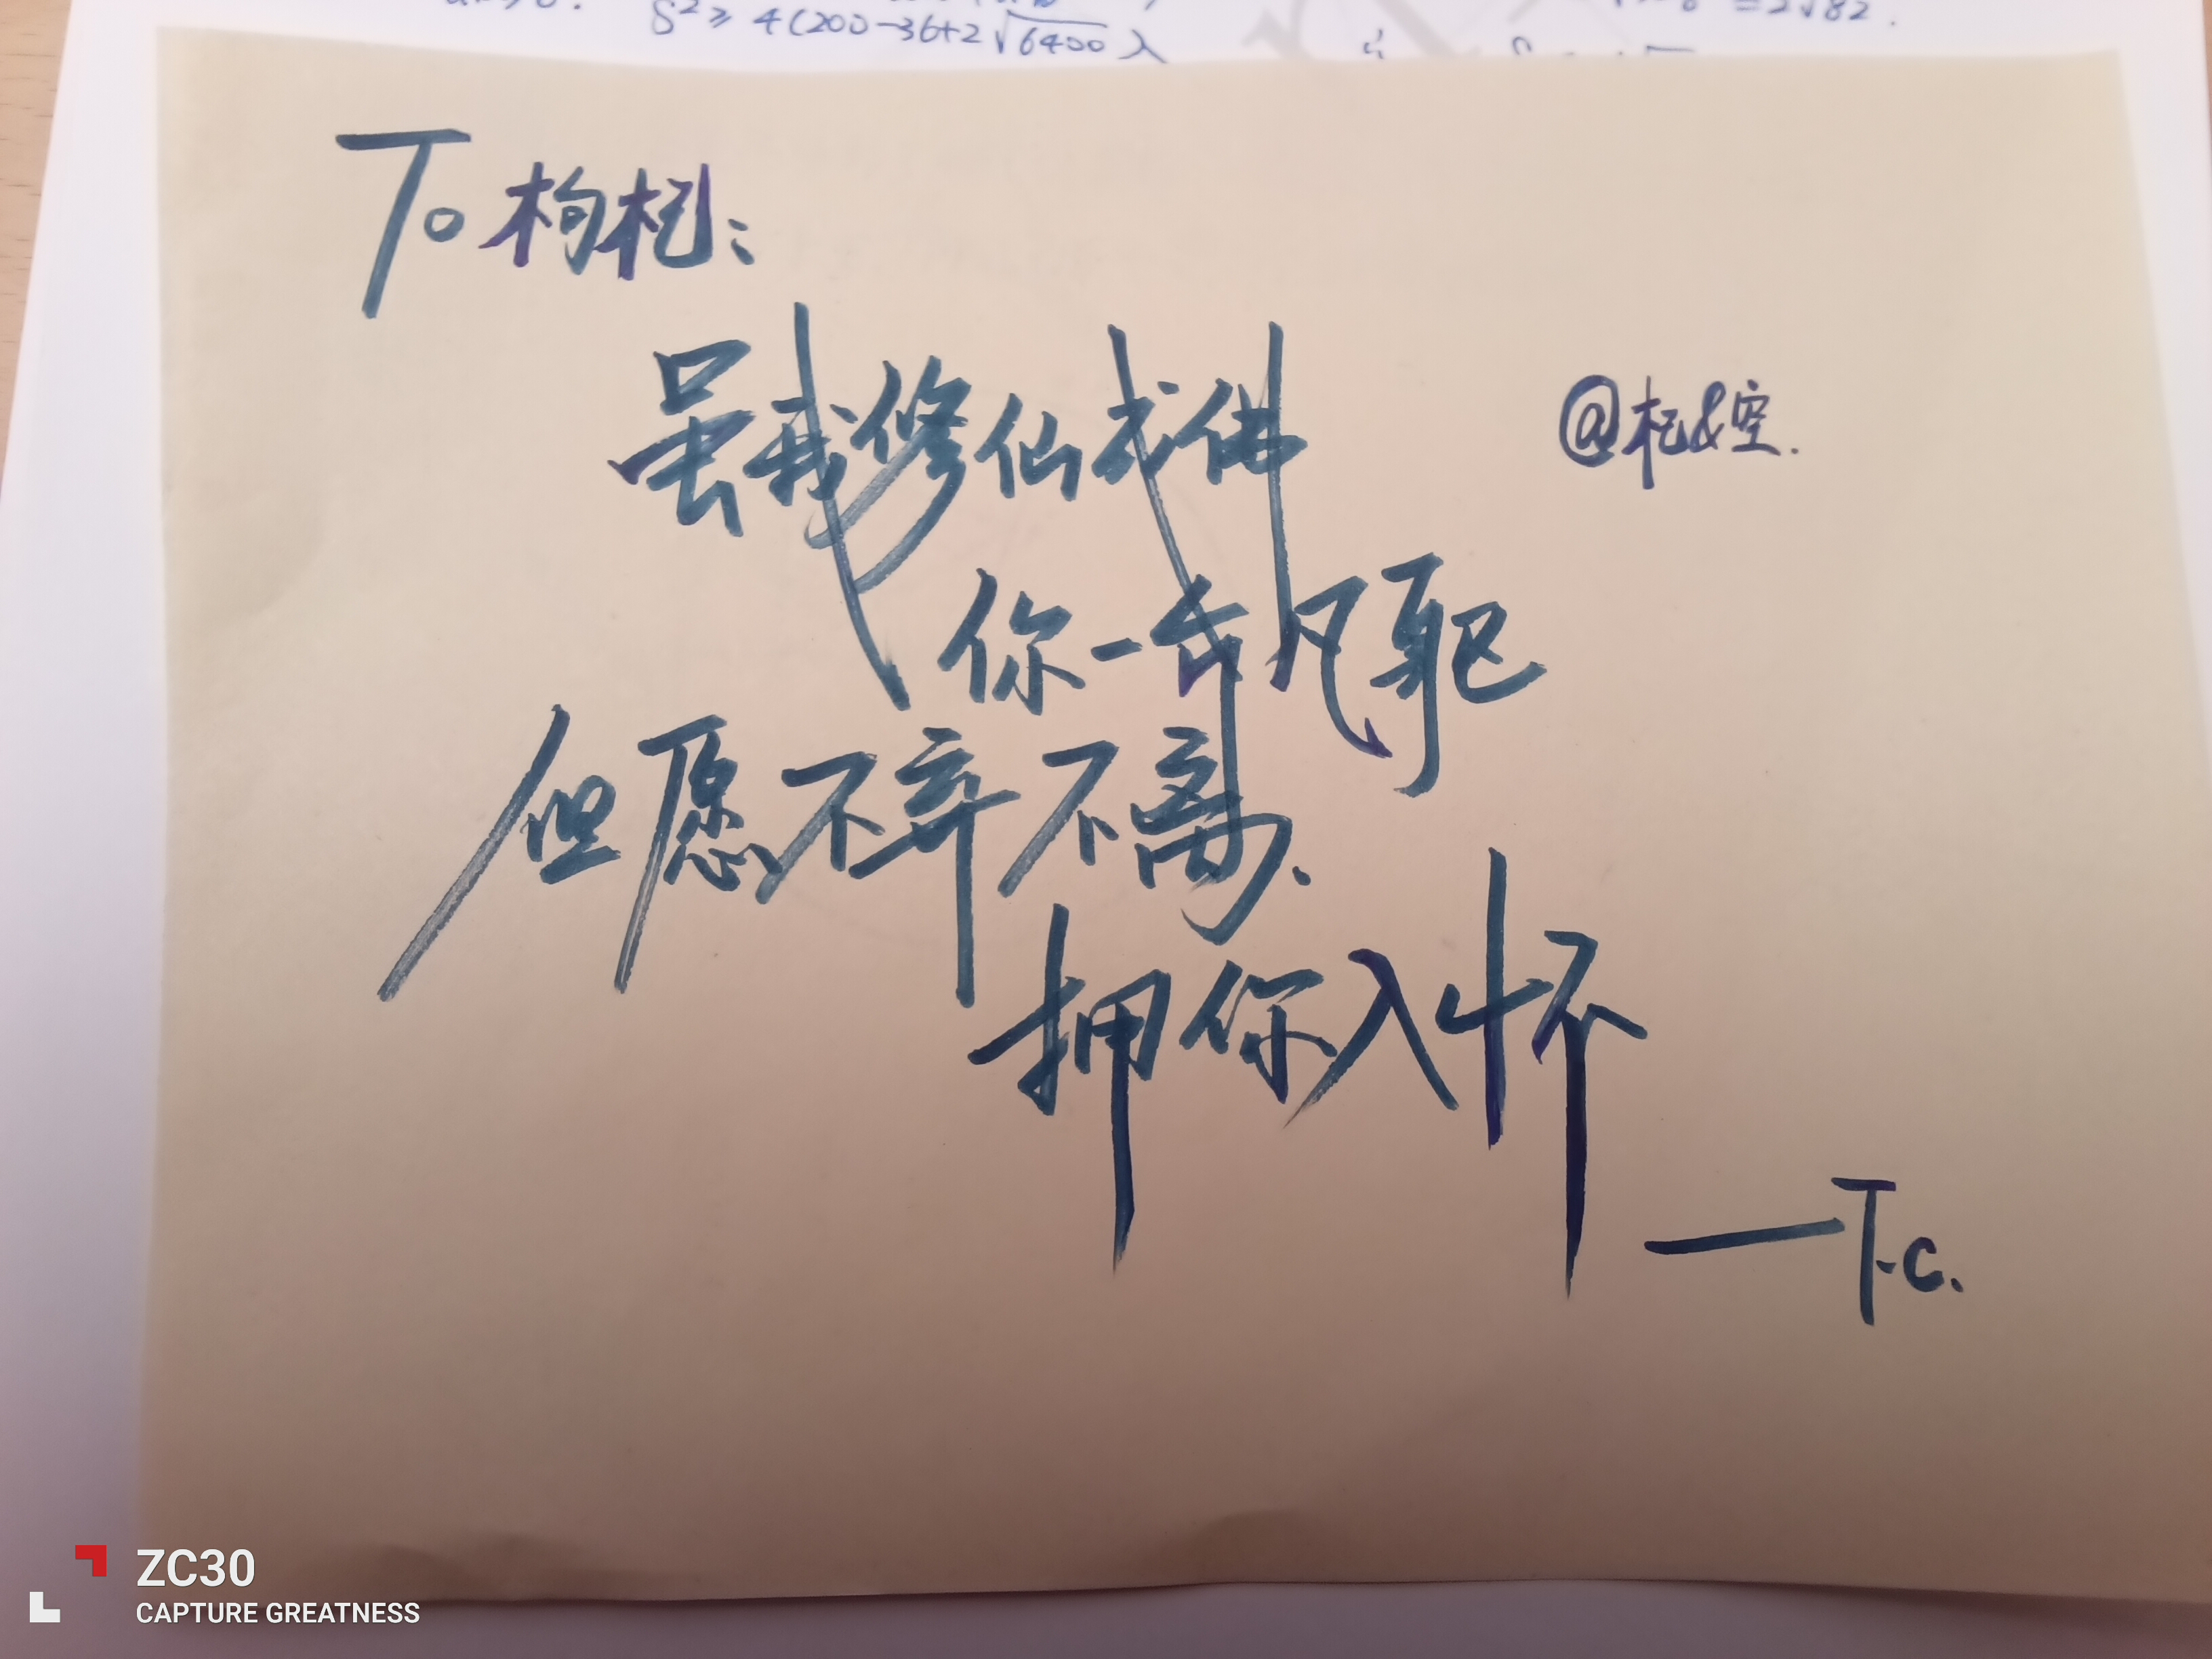 S²≥4(200-36+2√6400)
=2√82.
To 枸杞:
虽我修仙成佛
@杞&空.
你一步凡躯
但愿不弃不离.
押你入怀
—T.c.
ZC30
CAPTURE GREATNESS